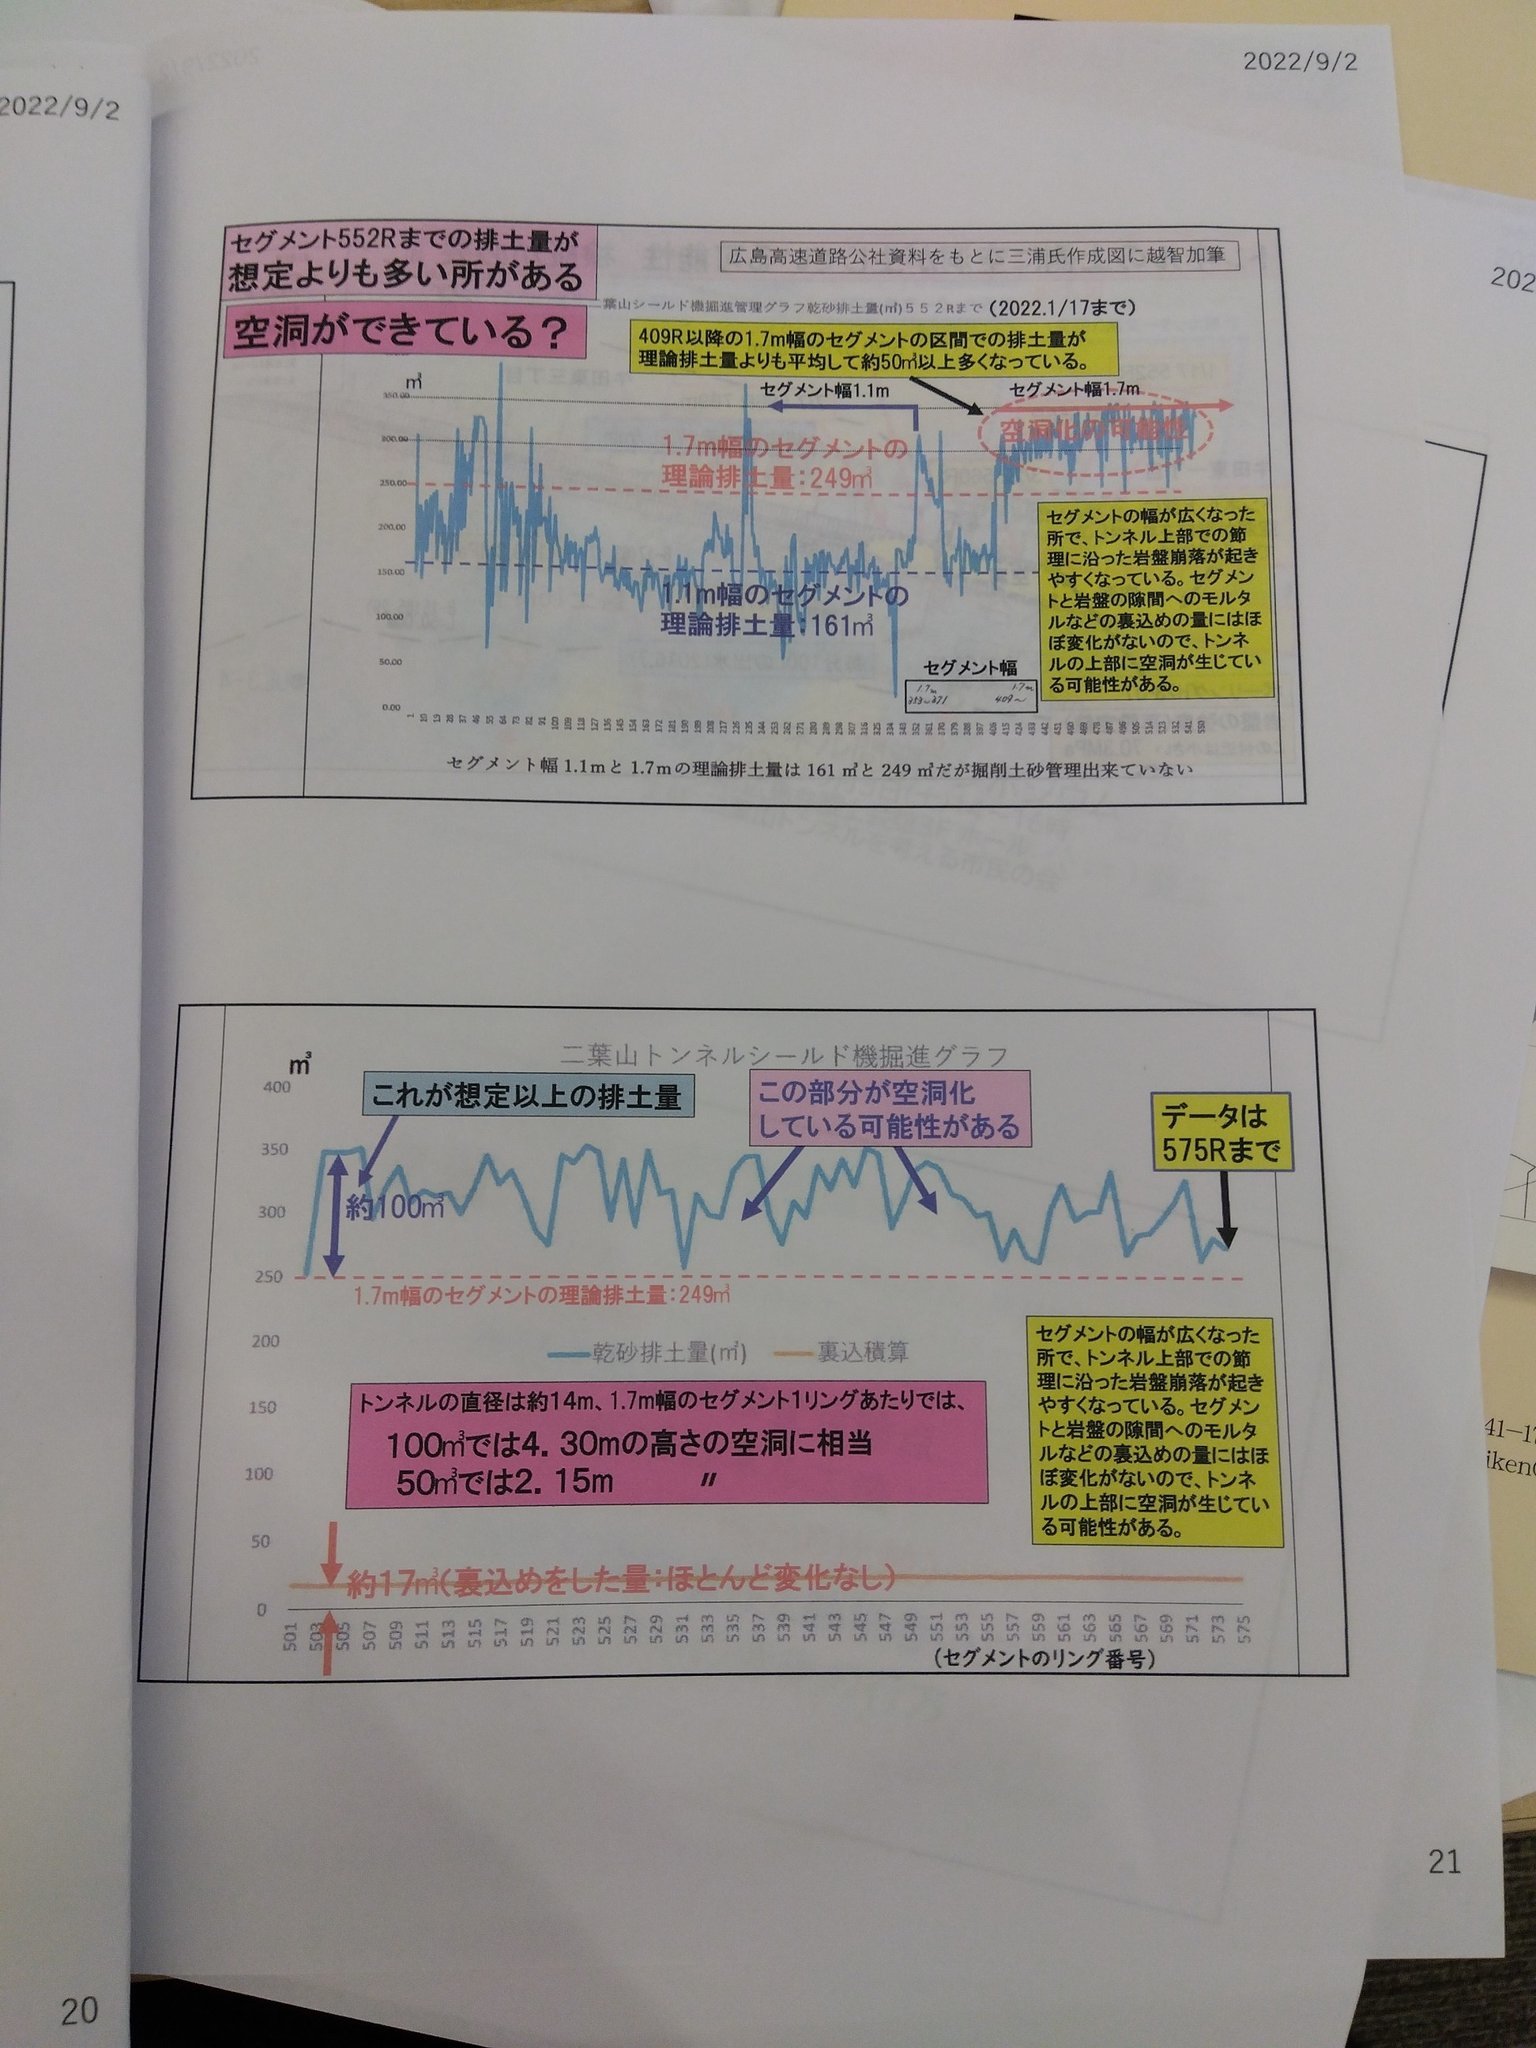 2022/9/2
2022/9/2
セグメント552Rまでの排土量が
想定よりも多い所がある
空洞ができている？
広島高速道路公社資料をもとに三浦氏作成図に越智加筆
二葉山シールド機掘進管理グラフ乾砂排土量(㎥)５５２Rまで(2022.1/17まで)
409R以降の1.7m幅のセグメントの区間での排土量が
理論排土量よりも平均して約50㎥以上多くなっている。
㎥
セグメント幅1.1m
セグメント幅1.7m
空洞化の可能性
1.7m幅のセグメントの
理論排土量：249㎥
1.1m幅のセグメントの
理論排土量：161㎥
350.00
300.00
250.00
200.00
150.00
100.00
50.00
0.00
セグメントの幅が広くなった
所で、トンネル上部での節
理に沿った岩盤崩落が起き
やすくなっている。セグメン
トと岩盤の隙間へのモルタ
ルなどの裏込めの量にはほ
ぼ変化がないので、トンネ
ルの上部に空洞が生じてい
る可能性がある。
セグメント幅
1.7m 1.7m
353～371 409～
セグメント幅 1.1mと 1.7mの理論排土量は 161 ㎥と 249 ㎥だが掘削土砂管理出来ていない
二葉山トンネルシールド機掘進グラフ
㎥
400
350
300
250
200
150
100
50
0
これが想定以上の排土量
この部分が空洞化
している可能性がある
データは
575Rまで
約100㎥
1.7m幅のセグメントの理論排土量：249㎥
乾砂排土量(㎥) 裏込積算
トンネルの直径は約14m、1.7m幅のセグメント1リングあたりでは、
100㎥では4.30mの高さの空洞に相当
50㎥では2.15m 〃
セグメントの幅が広くなった
所で、トンネル上部での節
理に沿った岩盤崩落が起き
やすくなっている。セグメン
トと岩盤の隙間へのモルタ
ルなどの裏込めの量にはほ
ぼ変化がないので、トンネ
ルの上部に空洞が生じてい
る可能性がある。
約17㎥(裏込めをした量：ほとんど変化なし)
501 503 505 507 509 511 513 515 517 519 521 523 525 527 529 531 533 535 537 539 541 543 545 547 549 551 553 555 557 559 561 563 565 567 569 571 573 575
(セグメントのリング番号)
21
20